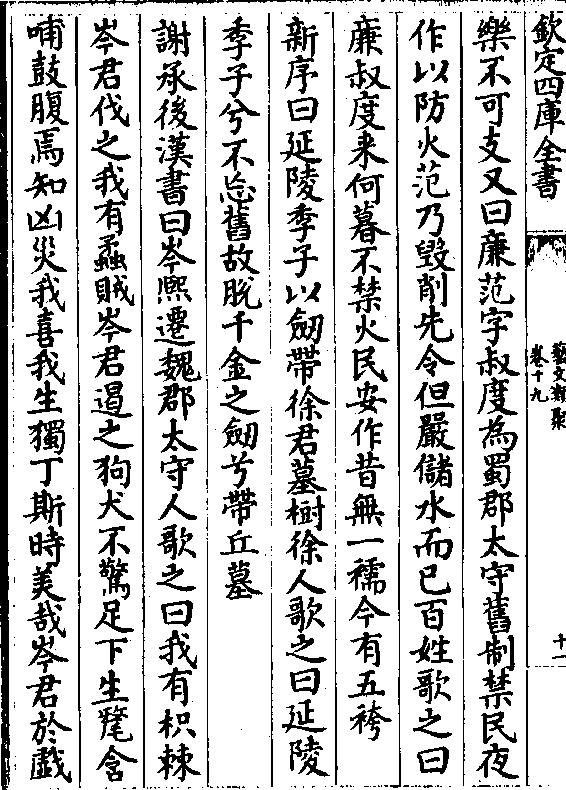 欽定四庫全書
藝文類聚
卷十九
十一
樂不可支又曰廉范字叔度為蜀郡太守舊制禁民夜
作以防火范乃毀削先令但嚴儲水而已百姓歌之曰
廉叔度来何暮不禁火民安作昔無一襦今有五袴
新序曰延陵季子以劔帶徐君墓樹徐人歌之曰延陵
季子兮不忘舊故脫千金之劔兮帶丘墓
謝承後漢書曰岑熙遷魏郡太守人歌之曰我有枳棘
岑君伐之我有蟊賊岑君遏之狗犬不驚足下生氂含
哺鼓腹焉知凶災我喜我生獨丁斯時美哉岑君於戲